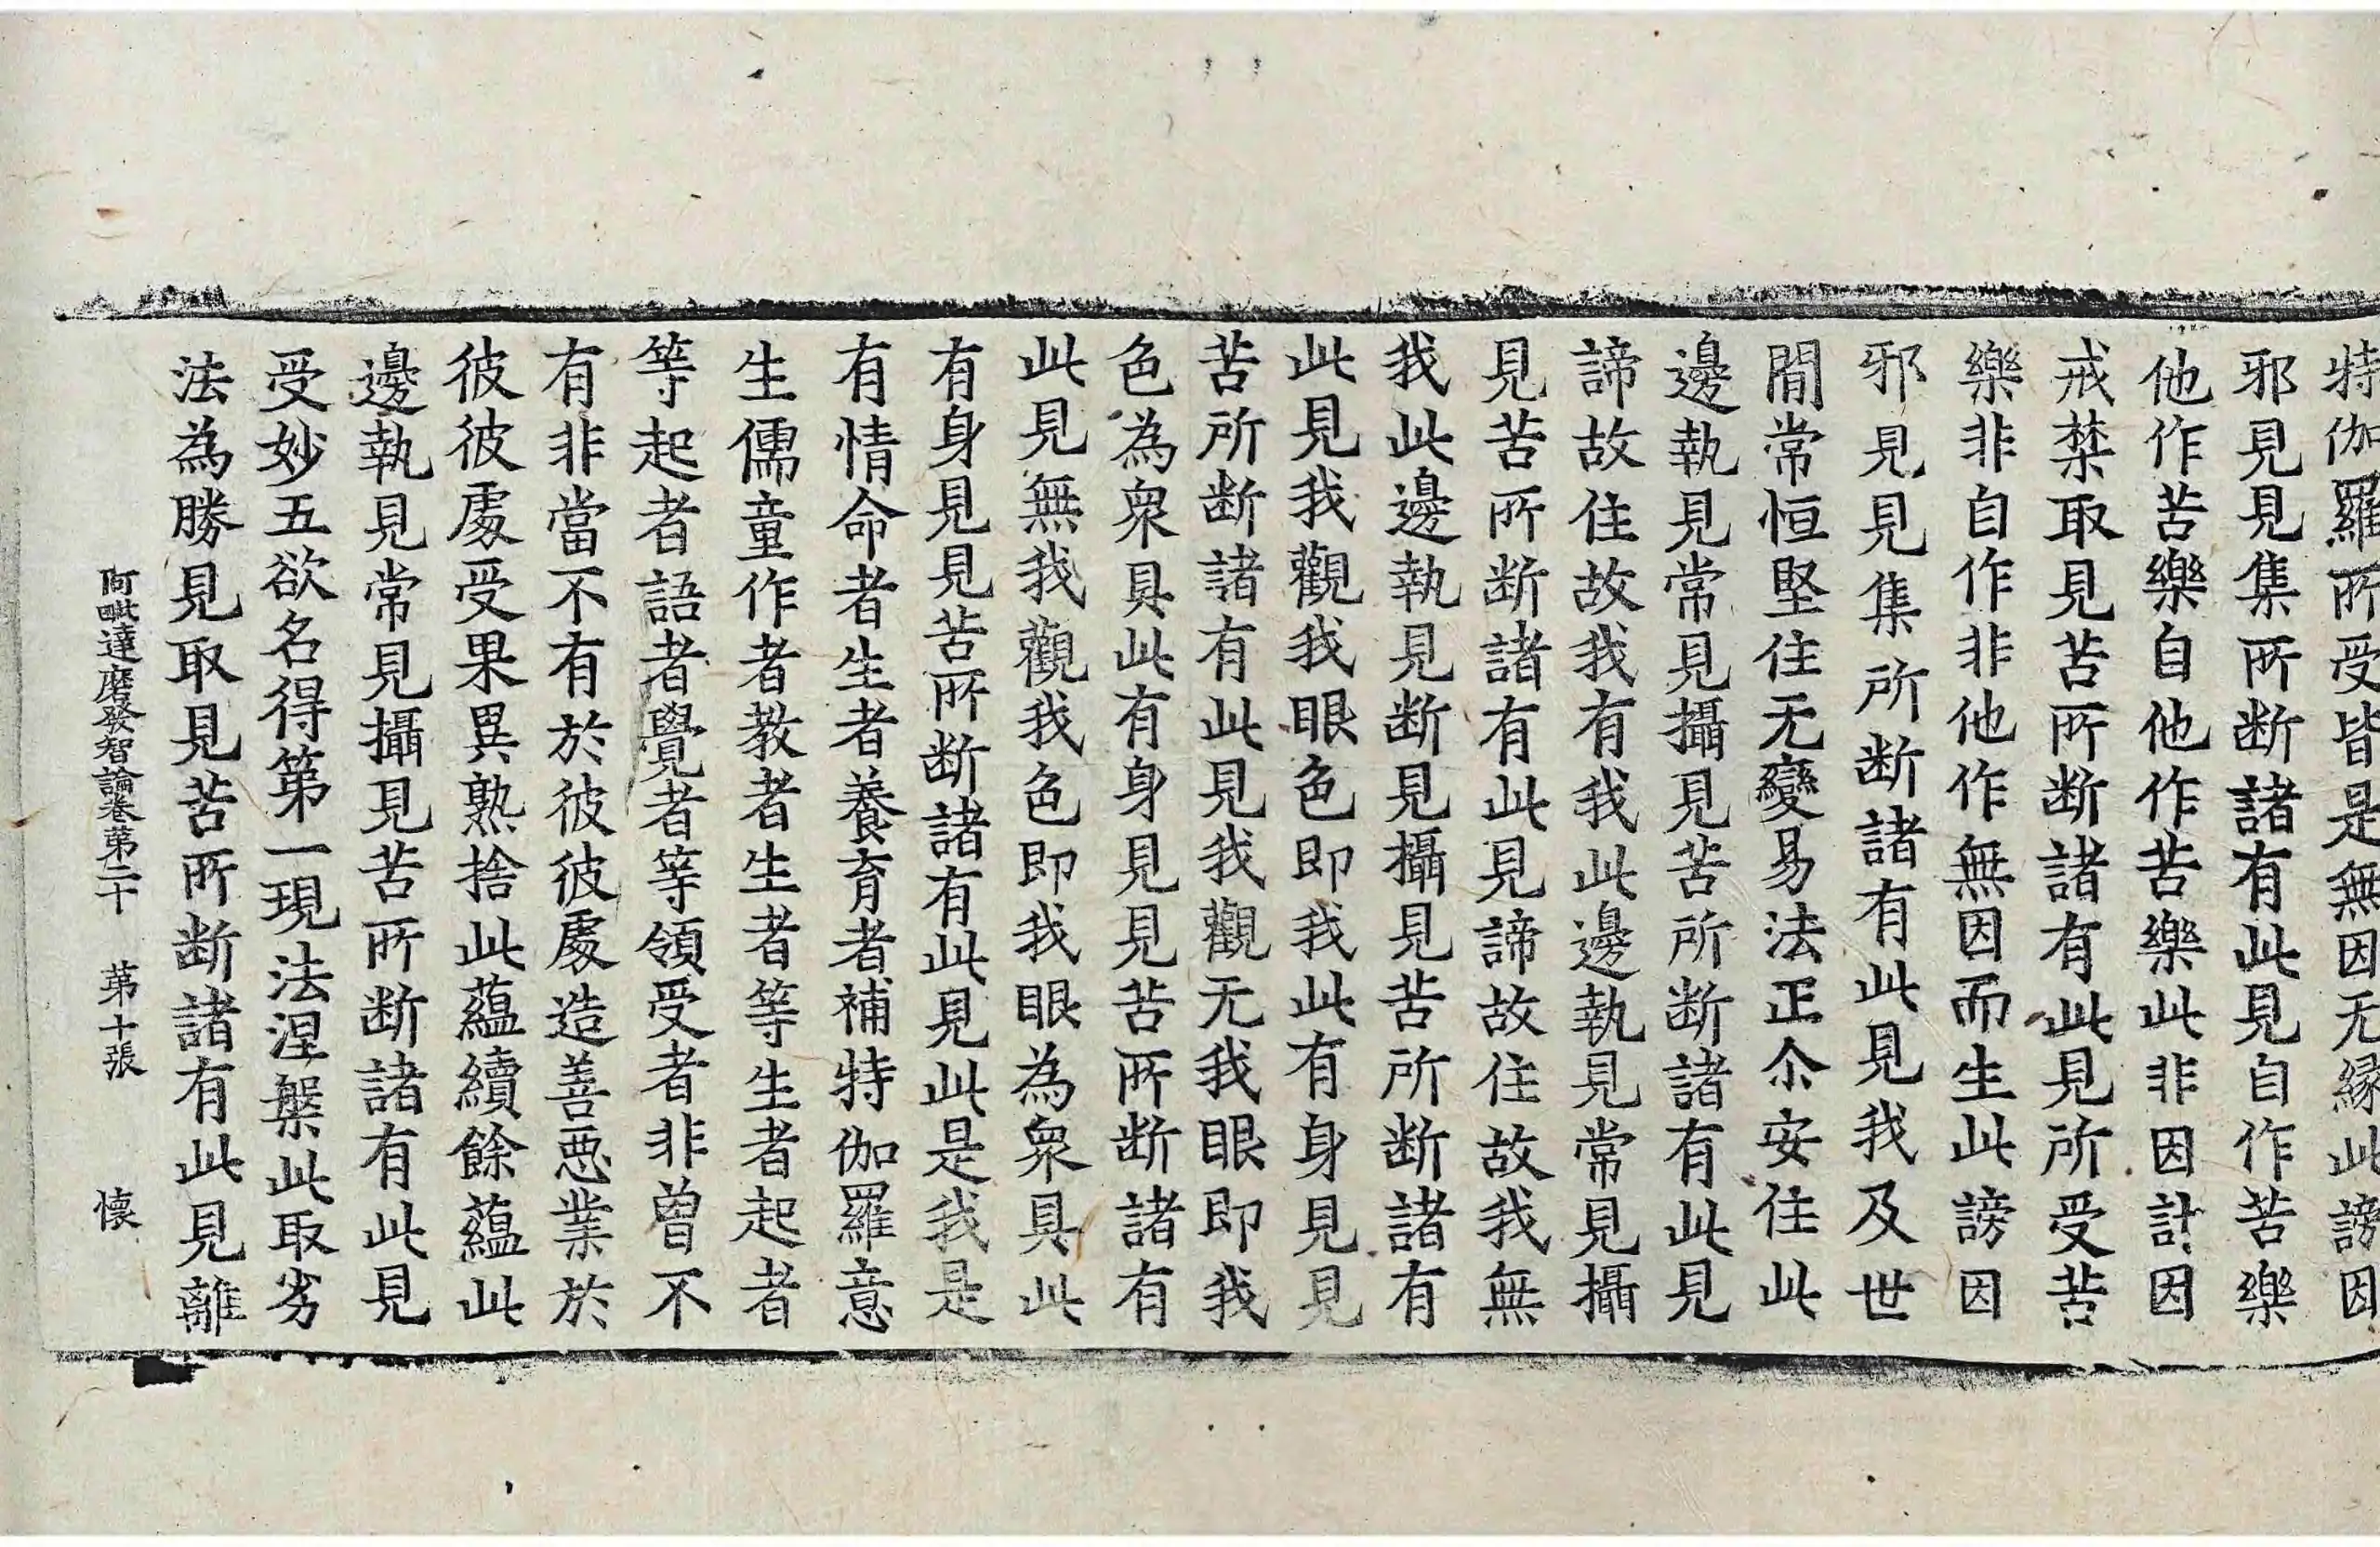 特伽羅所受皆是無因无縁此謗因
邪見見集所断諸有此見自作苦樂
他作苦樂自他作苦樂此非因計因
戒禁取見苦所断諸有此見所受苦
樂非自作非他作無因而生此謗因
邪見見集所断諸有此見我及世
間常恒堅住无變易法正尒安住此
邊執見常見攝見苦所断諸有此見
諦故住故我有我此邊執見常見攝
見苦所断諸有此見諦故住故我無
我此邊執見断見攝見苦所断諸有
此見我觀我眼色即我此有身見見
苦所断諸有此見我觀无我眼即我
色為衆具此有身見見苦所断諸有
此見無我觀我色即我眼為衆具此
有身見見苦所断諸有此見此是我是
有情命者生者養育者補特伽羅意
生儒童作者教者生者等生者起者
等起者語者覺者等領受者非曾不
有非當不有於彼彼處造善惡業於
彼彼處受果異熟捨此蘊續餘蘊此
邊執見常見攝見苦所断諸有此見
受妙五欲名得第一現法涅槃此取劣
法為勝見取見苦所断諸有此見離
阿毗達磨發智論卷第二十 第十張 懷